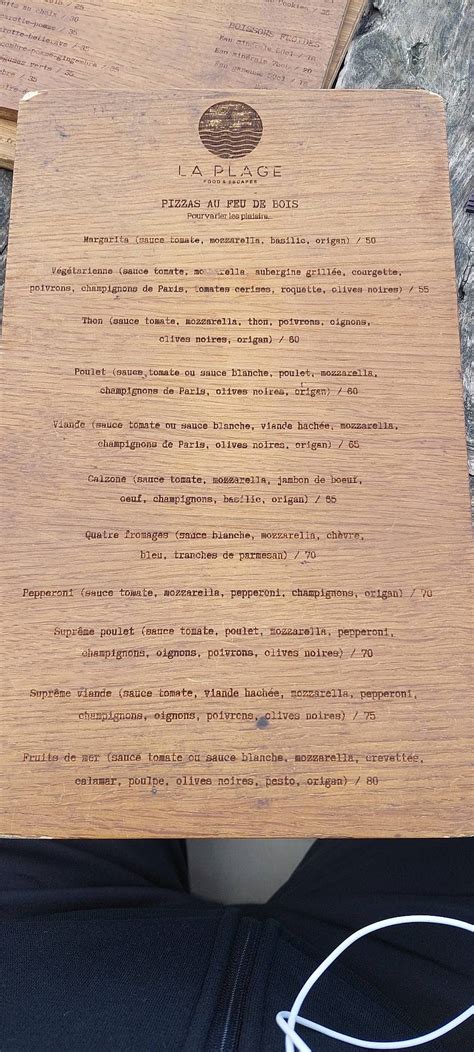 BOISSONS FROIDES
LA PLAGE
FOOD & ESCAPES
PIZZAS AU FEU DE BOIS
Pour varier les plaisirs...
Margarita (sauce tomate, mozzarella, basilic, origan) / 50
Végétarienne (sauce tomate, mozzarella, aubergine grillée, courgette,
poivrons, champignons de Paris, tomates cerises, roquette, olives noires) / 55
Thon (sauce tomate, mozzarella, thon, poivrons, oignons,
olives noires, origan) / 60
Poulet (sauce tomate ou sauce blanche, poulet, mozzarella,
champignons de Paris, olives noires, origan) / 60
Viande (sauce tomate ou sauce blanche, viande hachée, mozzarella,
champignons de Paris, olives noires, origan) / 65
Calzone (sauce tomate, mozzarella, jambon de boeuf,
oeuf, champignons, basilic, origan) / 65
Quatre fromages (sauce blanche, mozzarella, chèvre,
bleu, tranches de parmesan) / 70
Pepperoni (sauce tomate, mozzarella, pepperoni, champignons, origan) / 70
Suprême poulet (sauce tomate, poulet, mozzarella, pepperoni,
champignons, oignons, poivrons, olives noires) / 70
Suprême viande (sauce tomate, viande hachée, mozzarella, pepperoni,
champignons, oignons, poivrons, olives noires) / 75
Fruits de mer (sauce tomate ou sauce blanche, mozzarella, crevettes,
calamar, poulpe, olives noires, pesto, origan) / 80